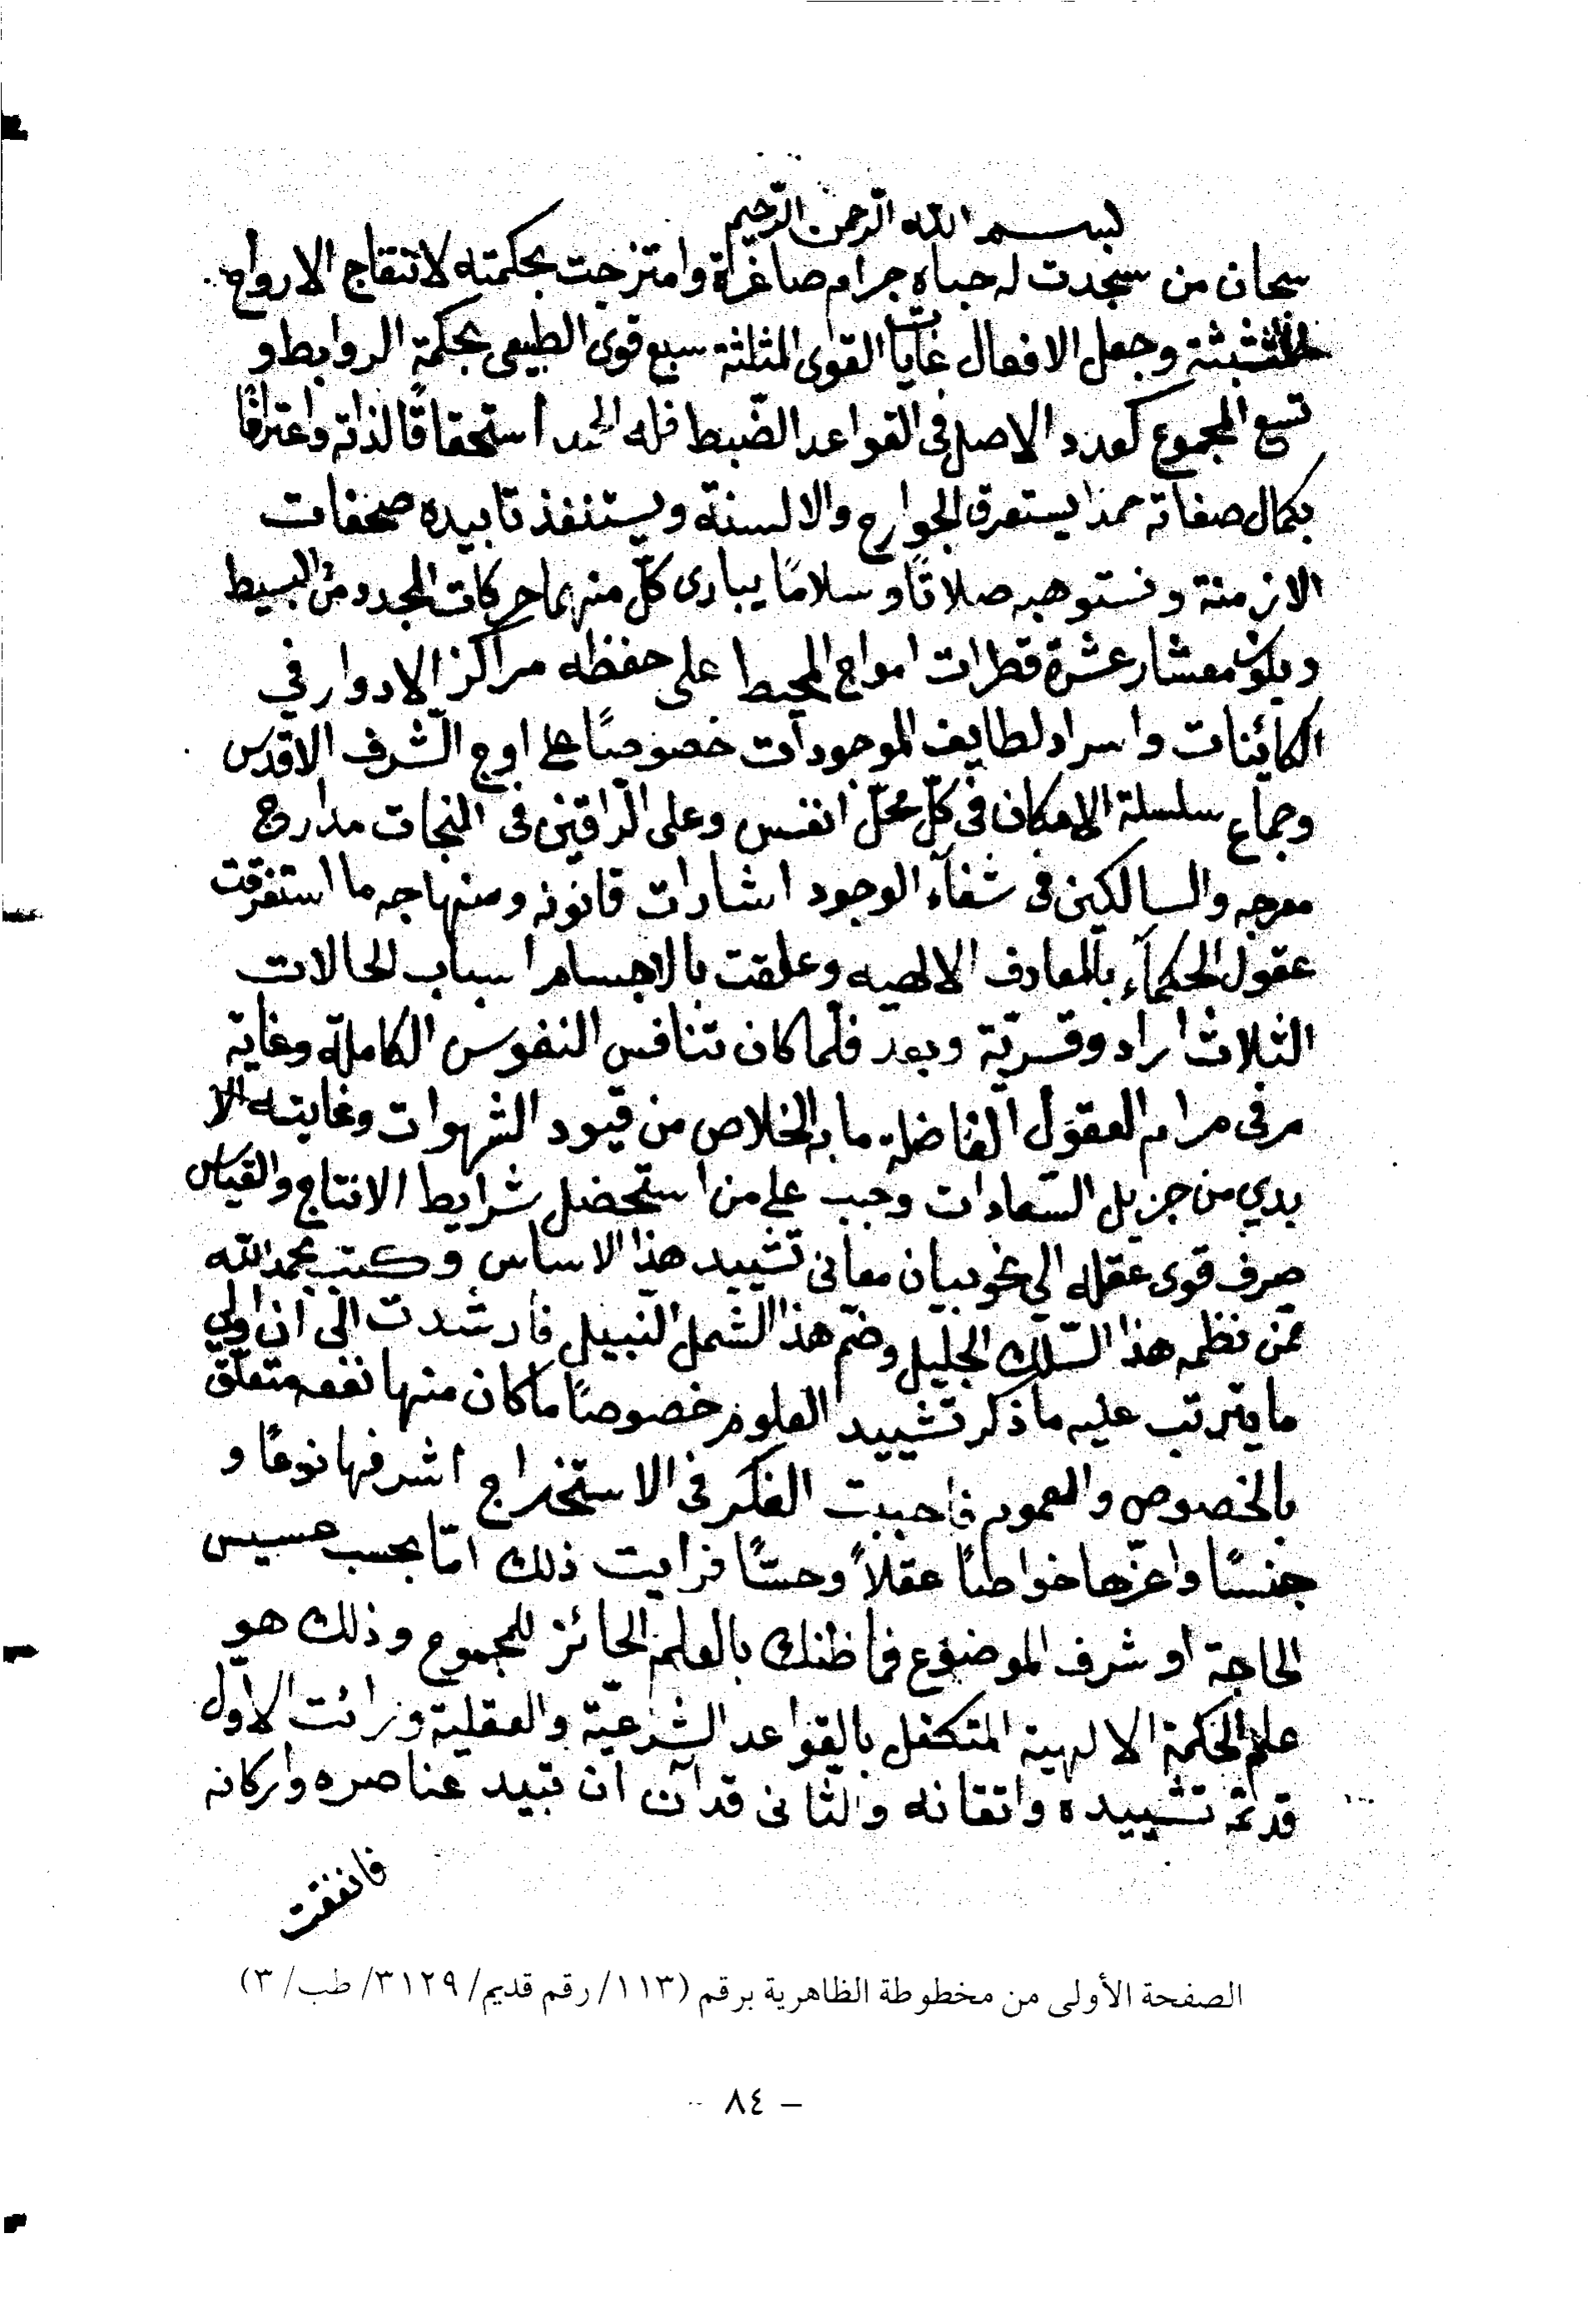 بسم الله الرحمن الرحيم
سبحان من سجدت له جباه جرام صاغرة وامتزجت بحكمته لانتقاج الارواح
وجعل الافعال غايات القوى المثلثة سبع قوى الطبيعى بحكمة الروابط و
تسع المجموع كعدد الاصل فى القواعد الضبط فله الحمد استحقاقًا لذاته واعترافًا
بكمال صفاته حمدا يستعرق الجوارح والالسنة ويستنفذ تابيده صحفات
الازمنة ونستوهبه صلاتًا وسلامًا يبارى كلّ منهما حركات المجدد من البسيط
ويكون معشار عشرة قطرات امواج المحيط على حفظه مراكز الادوار في
الكائنات واسراد لطايف الموجودات خصوصًا على اوج الشّرف الاقدس
وجماع سلسلة الامكان فى كلّ محلّ انفس وعلى الراقين فى النجات مدارج
معرجه والسالكين فى شفآء الوجود اشارات قانونه ومنهاجه ما استفرقت
عقول الحكمآء بالمعارف الالهيه وعلقت بالاجسام اسباب لحالات
الثلاث اراد وقسريّة وبعد فلّما كان تنافس النفوس الكاملة وغاية
مرقى مرام العقول الفاضلة ما به الخلاص من قيود الشهوات وغايته الا
بدي من جزيل السّعادات وجب على من استحضل شرايط الانتاج والقياس
صرف قوى عقله الي نحو بيان معانى تشييد هذا الاساس وكنت بحمد الله
ممن نظمه هذا السّلك الجليل وضم هذا الشمل النبيل فارشدت الى ان اولي
ما يترتب عليه ما ذكر تشييد العلوم خصوصًا ما كان منها نفعه متعلّق
بالخصوص والعموم فاحببت الفكر فى الاستخراج اشرفها نوعًا و
جنسًا واعزّها خواطبًا عقلاً وحسًّا فرايت ذلك امّا بحسب مسيس
الحاجة او شرف الموضوع فما ظنك بالعلم الحائز للمجموع وذلك هو
علم الحكمة الالهية المتكفل بالقواعد الشرعيّة والعقلية ورائت الاول
قد تمّ تشييده واتقانه والثانى قد آن ان تبيد عناصره واركانه
فانفقت
الصفحة الأولى من مخطوطة الظاهرية برقم (١١٣/ رقم قديم/ ٣١٢٩/ طب/ ٣)
– ٨٤ –